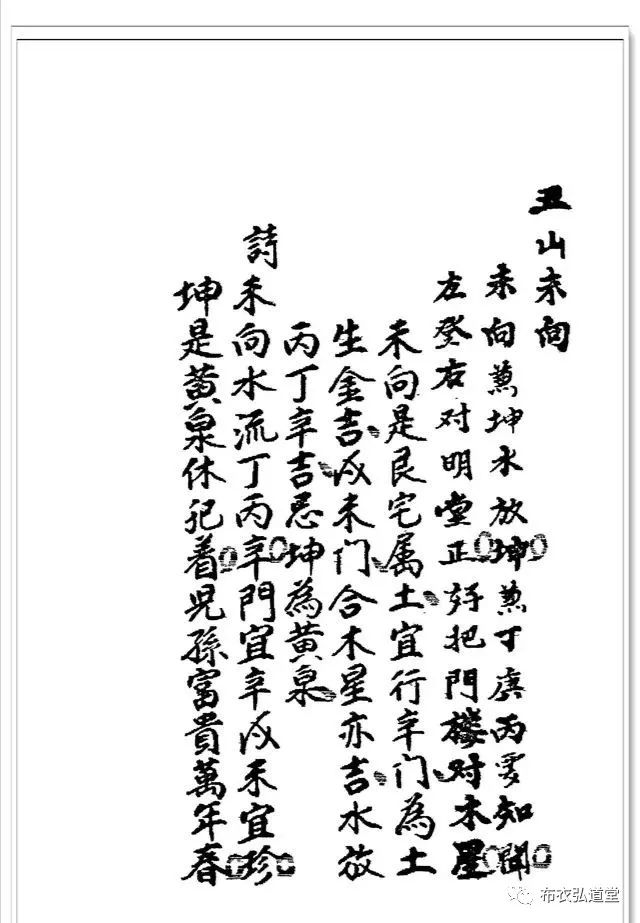 丑山未向
未向兼坤水放坤兼丁庚丙要知聞
左登右对明堂正好把門楼对木星
未向是艮宅属土宜行辛门為土
生金吉或未门合木星亦吉水放
丙丁辛吉忌坤為黄泉
詩未向水流丁丙辛門宜辛或未宜珍
坤是黄泉休犯着児孫富貴萬年春
布衣弘道堂